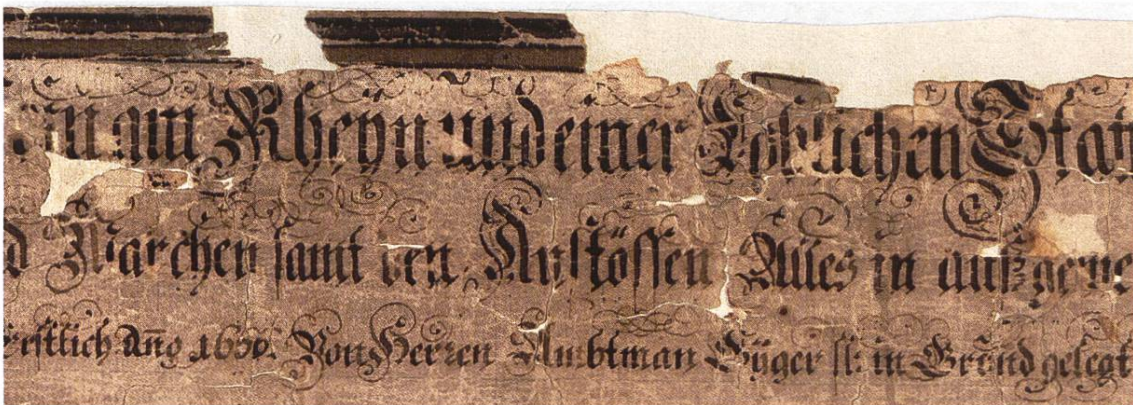 am Rheyn und einer Löblichen
Marchen samt den Anstössen Alles in
Añо 1650. Von Herren Ambtman Gyger sl: in Grund gelegt